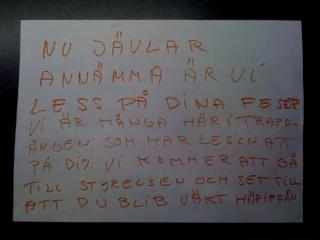 NU JÄVLAR
ANNÄMMA ÄR VI
LESS PÅ DINA FESER
VI ÄR MÅNGA HÄR I TRAPD-
ÅNGEN SOM HAR LESSNAT
PÅ DIG. VI KOMMER ATT GÅ
TILL STYRELSEN OCH SET TILL
ATT DU BLIB VÄKT HÄRIFRÅN